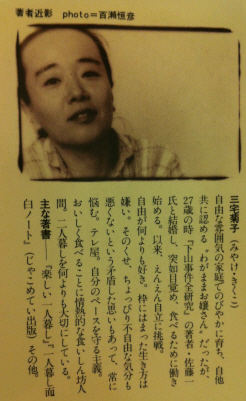 著者近影　photo＝百瀬恒彦
三宅菊子（みやけ・きくこ）
自由な雰囲気の家庭でのびやかに育ち、自他
共に認める〝わがままお嬢さん〟だったが、
27歳の時『下山事件全研究』の著者・佐藤一
氏と結婚し、突如目覚め、食べるために働き
始める。以来、えんえん自立に挑戦。
自由が何よりも好き。枠にはまった生き方は
嫌い。そのくせ、ちょっぴり不自由な気分も
悪くないという矛盾した思いもあって、常に
悩む。テレ屋。自分のペースを守る主義。
おいしく食べることに情熱的な食いしん坊人
間。二人暮しを何よりも大切にしている。
主な著書――『楽しい一人暮し』『一人暮し面
白ノート』（じゃこめてい出版）その他。